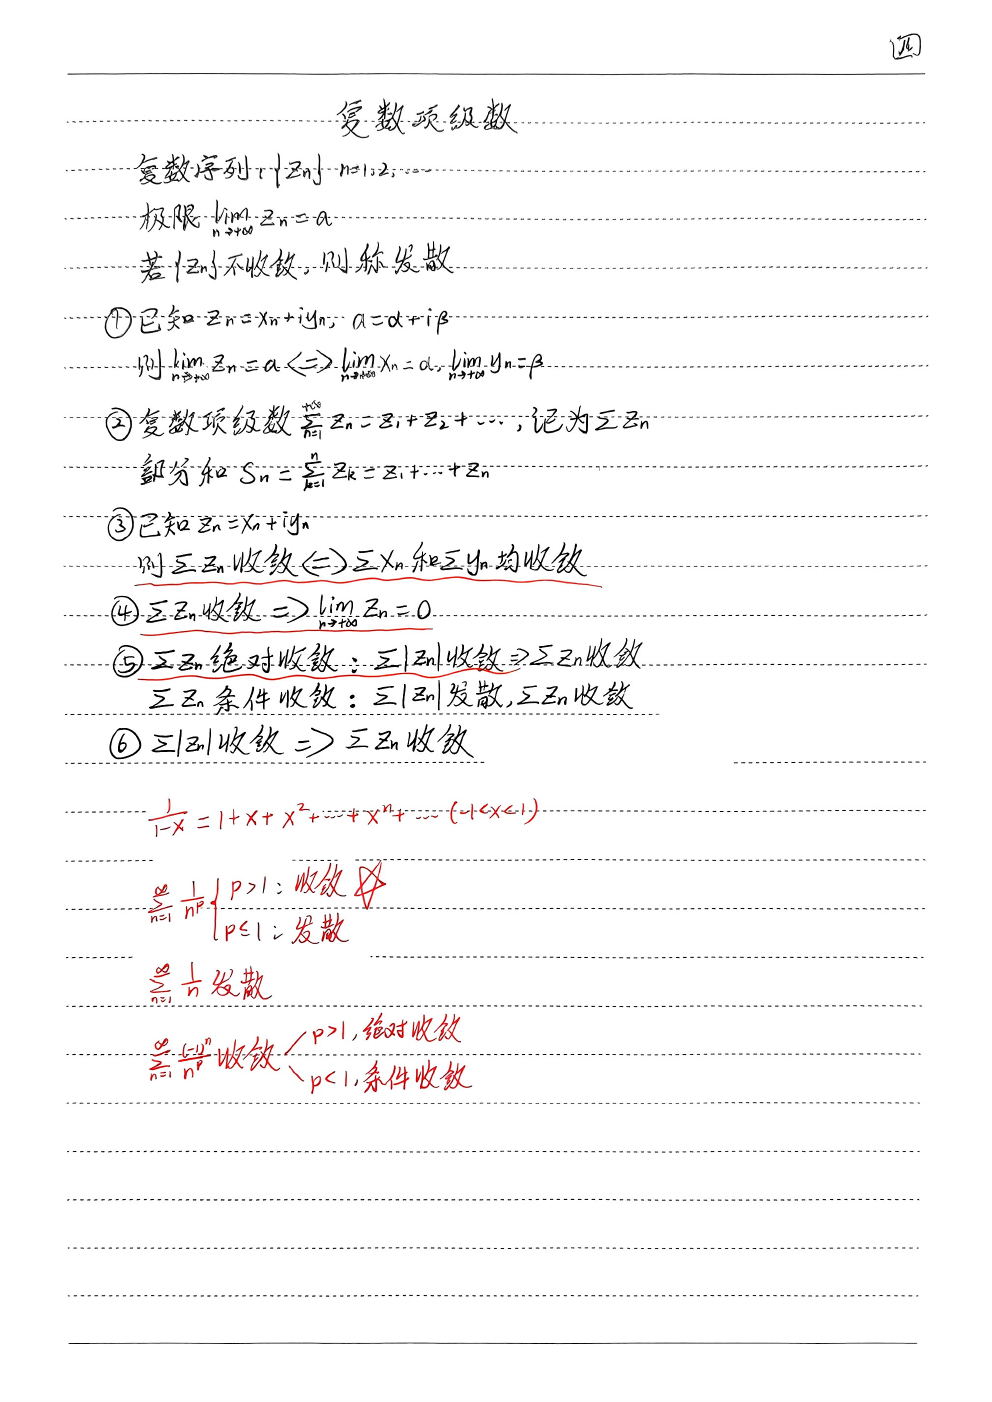 四
复数项级数
复数序列:{Zn} n=1,2,……
极限 lim n→+∞ Zn=a
若{Zn}不收敛,则称发散
① 已知 Zn=Xn+iyn, a=α+iβ
则 lim n→+∞ Zn=a <=> lim n→+∞ Xn=α, lim n→+∞ yn=β
② 复数项级数 +∞ Σ n=1 Zn=Z1+Z2+……,记为ΣZn
部分和 Sn= n Σ k=1 Zk=Z1+…+Zn
③ 已知 Zn=Xn+iyn
则ΣZn收敛<=>ΣXn和Σyn均收敛
④ ΣZn收敛 => lim n→+∞ Zn=0
⑤ ΣZn绝对收敛: Σ|Zn|收敛=>ΣZn收敛
ΣZn条件收敛: Σ|Zn|发散,ΣZn收敛
⑥ Σ|Zn|收敛 => ΣZn收敛
1/(1-x) = 1+x+x²+…+xⁿ+… (-1<x<1)
∞ Σ n=1 1/n^p { p>1:收敛 ☆
p≤1:发散
∞ Σ n=1 1/n 发散
p>1,绝对收敛
∞ Σ n=1 (-1)^n/n^p 收敛
p<1,条件收敛